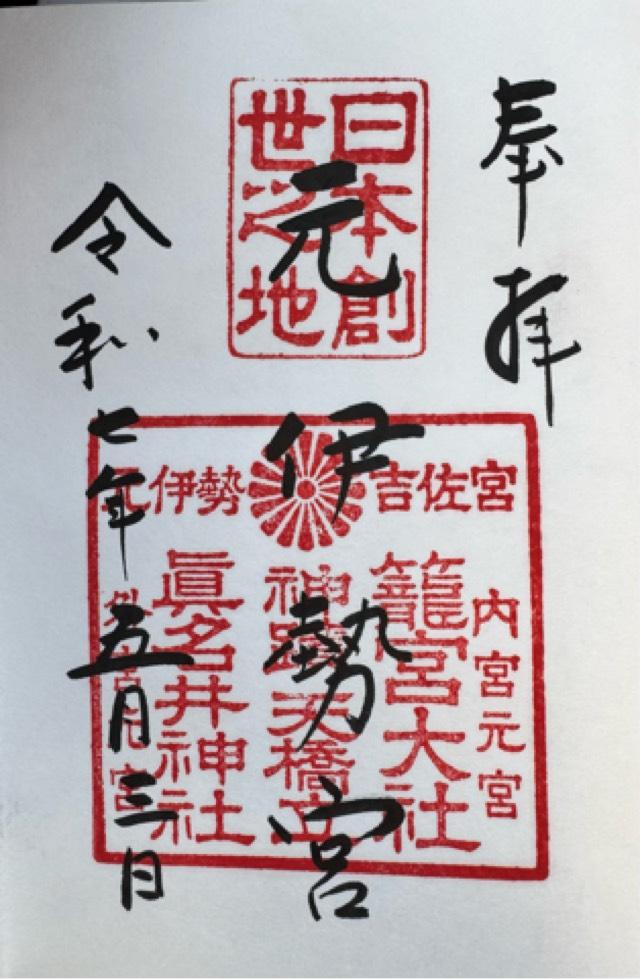 奉拝
日本創
世之地
元伊勢宮
吉佐宮
元伊勢
内宮元宮
籠宮大社
神蹟天橋立
眞名井神社
外宮元宮
令和七年五月三日